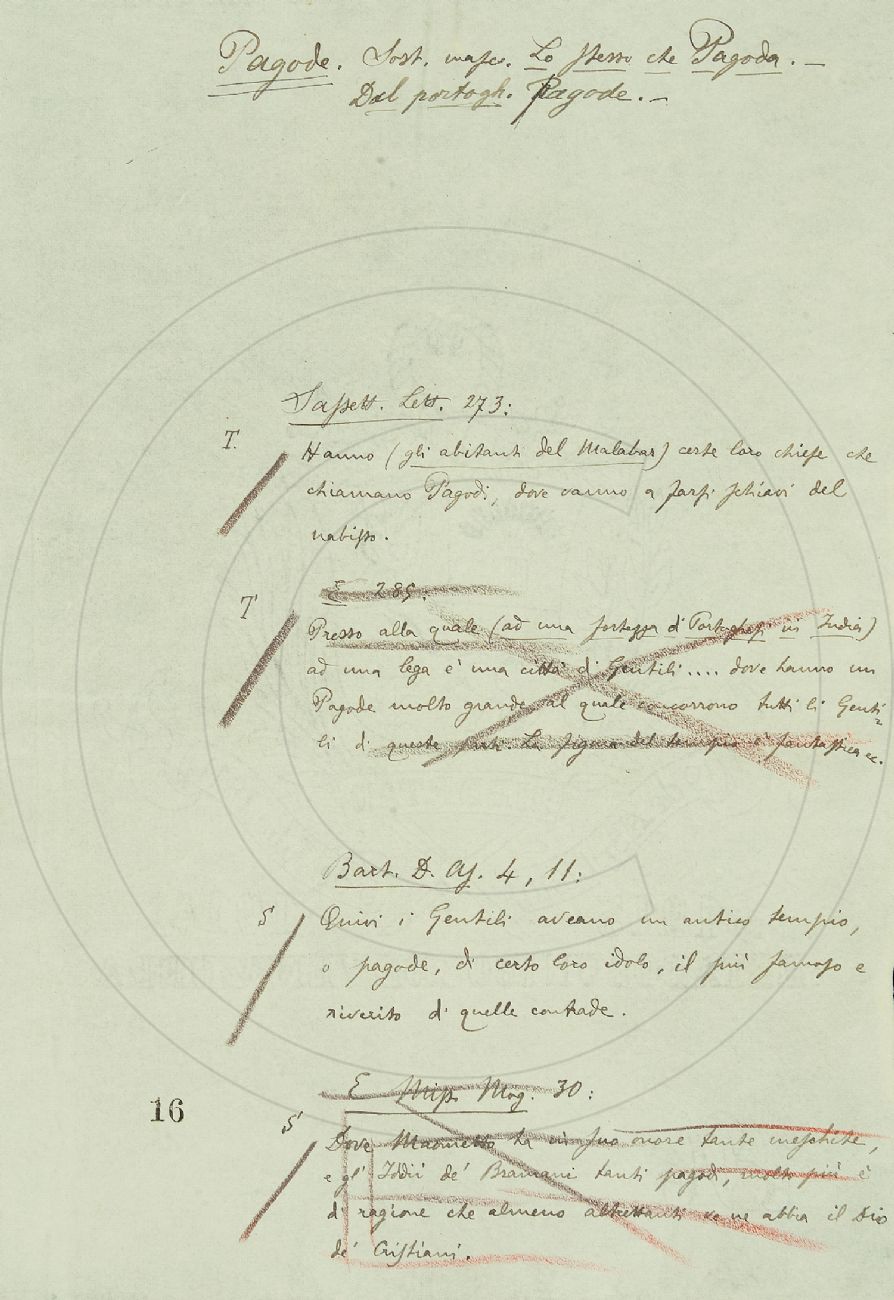 Pagode. Sost. masc. Lo stesso che Pagoda. —
Dal portogh. Pagode. —
Sassett. Lett. 273:
T.
Hanno (gli abitanti del Malabar) certe loro chiese che
chiamano Pagodi, dove vanno a farsi schiavi del
nabisso.
E 285:
T
Presso alla quale (ad una fortezza di Portoghesi in India)
ad una lega è una città di Gentili.... dove hanno un
Pagode molto grande, al quale concorrono tutti li Genti=
li di queste parti. La figura del tempio è fantastica ec.
Bart. D. As. 4, 11:
S
Quivi i Gentili aveano un antico tempio,
o pagode, di certo loro idolo, il più famoso e
riverito di quelle contrade.
E Miss. Mog. 30:
16
S
Dove Maometto ha in suo onore tante meschite,
e gl' Iddii de' Bramani tanti pagodi, molto più è
di ragione che almeno altrettanti ve ne abbia il Dio
de' Cristiani.